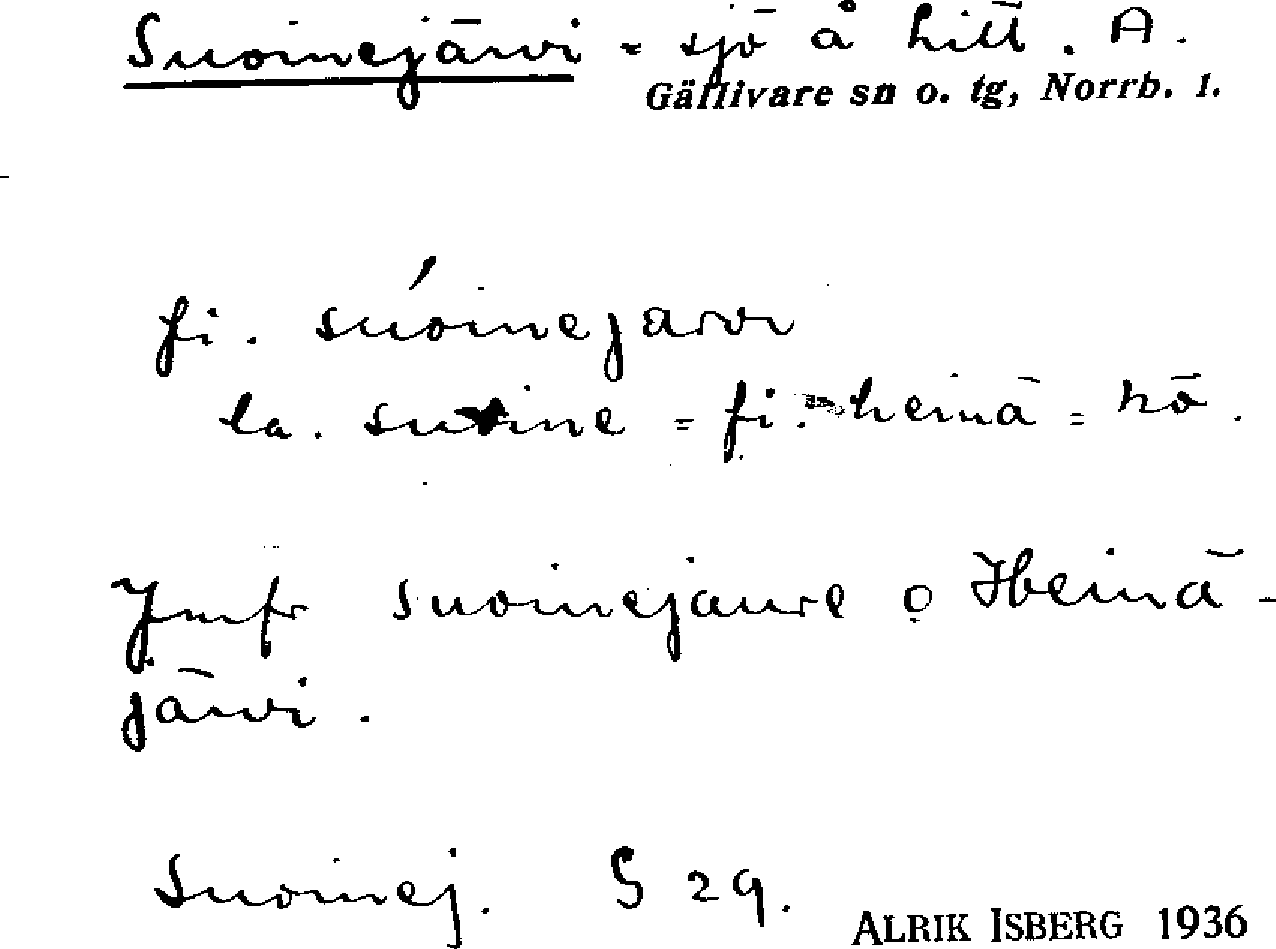 Suoinejärvi - sjö å hitt. A.
Gällivare sn o. tg, Norrb. l.
fi. súoinejarvi
la. suoine = fi. heinä = hö.
Jmfr suoinejaure o Heinä-
järvi.
Suoinej. S 29.
ALRIK ISBERG 1936